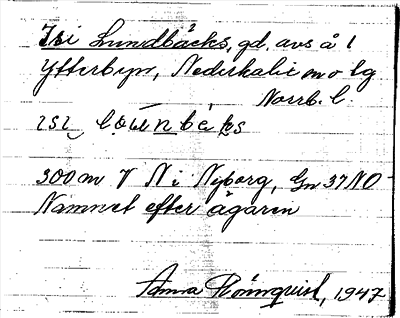 Isi Lundbäcks, gd. avs å 1
Ytterbyn, Nederkalix sn o tg
Norrb. l.
300 m V N i Nyborg, Gn 37 NO
Namnet efter ägaren
Anna Rönnquist, 1947